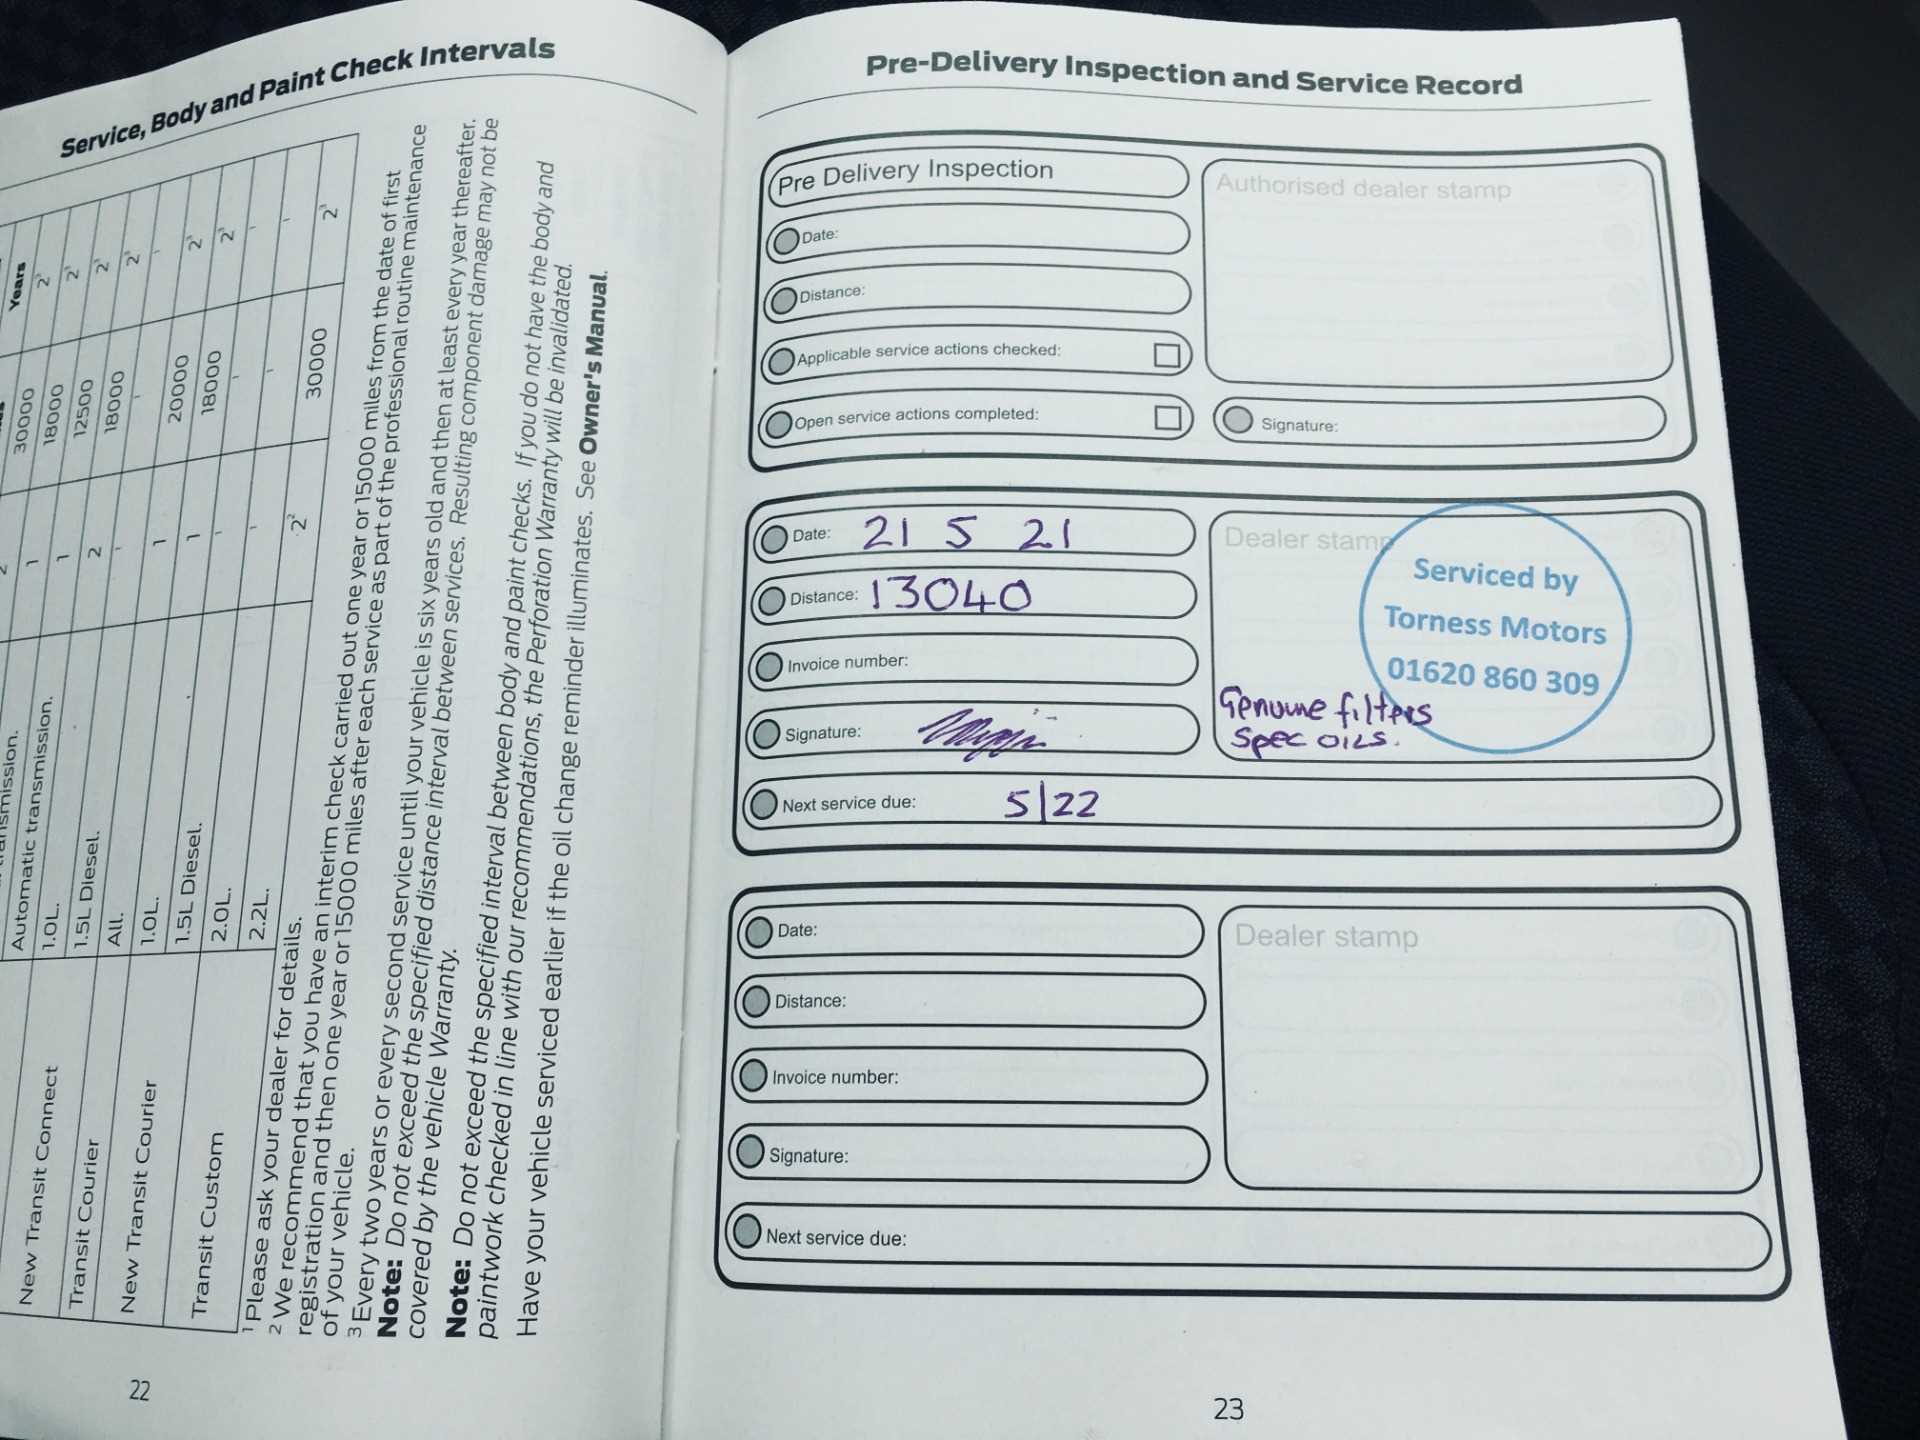 Service, Body and Paint Check Intervals
Years
30000 2³
18000 2³
1 12500 2³
1 18000 2³
2 - -
- 20000 2³
1 18000 2³
1 - -
- - -
-
2² 30000 2³
Automatic transmission.
New Transit Connect 1.0L.
1.5L Diesel.
Transit Courier All.
New Transit Courier 1.0L.
1.5L Diesel.
Transit Custom 2.0L.
2.2L.
¹ Please ask your dealer for details.
² We recommend that you have an interim check carried out one year or 15000 miles from the date of first
registration and then one year or 15000 miles after each service as part of the professional routine maintenance
of your vehicle.
³ Every two years or every second service until your vehicle is six years old and then at least every year thereafter.
Note: Do not exceed the specified distance interval between services. Resulting component damage may not be
covered by the vehicle Warranty.
Note: Do not exceed the specified interval between body and paint checks. If you do not have the body and
paintwork checked in line with our recommendations, the Perforation Warranty will be invalidated.
Have your vehicle serviced earlier if the oil change reminder illuminates. See Owner's Manual.
22
Pre-Delivery Inspection and Service Record
Pre Delivery Inspection
Date:
Distance:
Applicable service actions checked:
Open service actions completed:
Authorised dealer stamp
Signature:
Date: 21 5 21
Distance: 13040
Invoice number:
Signature:
Next service due: 5/22
Dealer stamp
Serviced by
Torness Motors
01620 860 309
Genuine filters
Spec oils.
Date:
Distance:
Invoice number:
Signature:
Next service due:
Dealer stamp
23